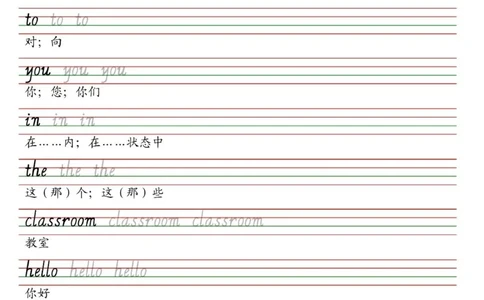 to to to
对；向
you you you
你；您；你们
in in in
在……内；在……状态中
the the the
这（那）个；这（那）些
classroom classroom classroom
教室
hello hello hello
你好